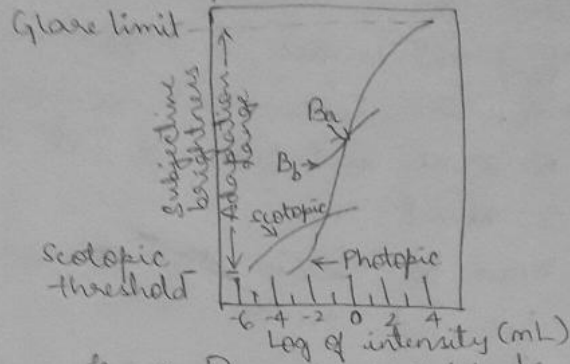 Glare limit
Subjective
brightness
Adaptation
range
Ba
Bb
scotopic
Photopic
Scotopic
threshold
-6 -4 -2 0 2 4
Log of intensity (mL)